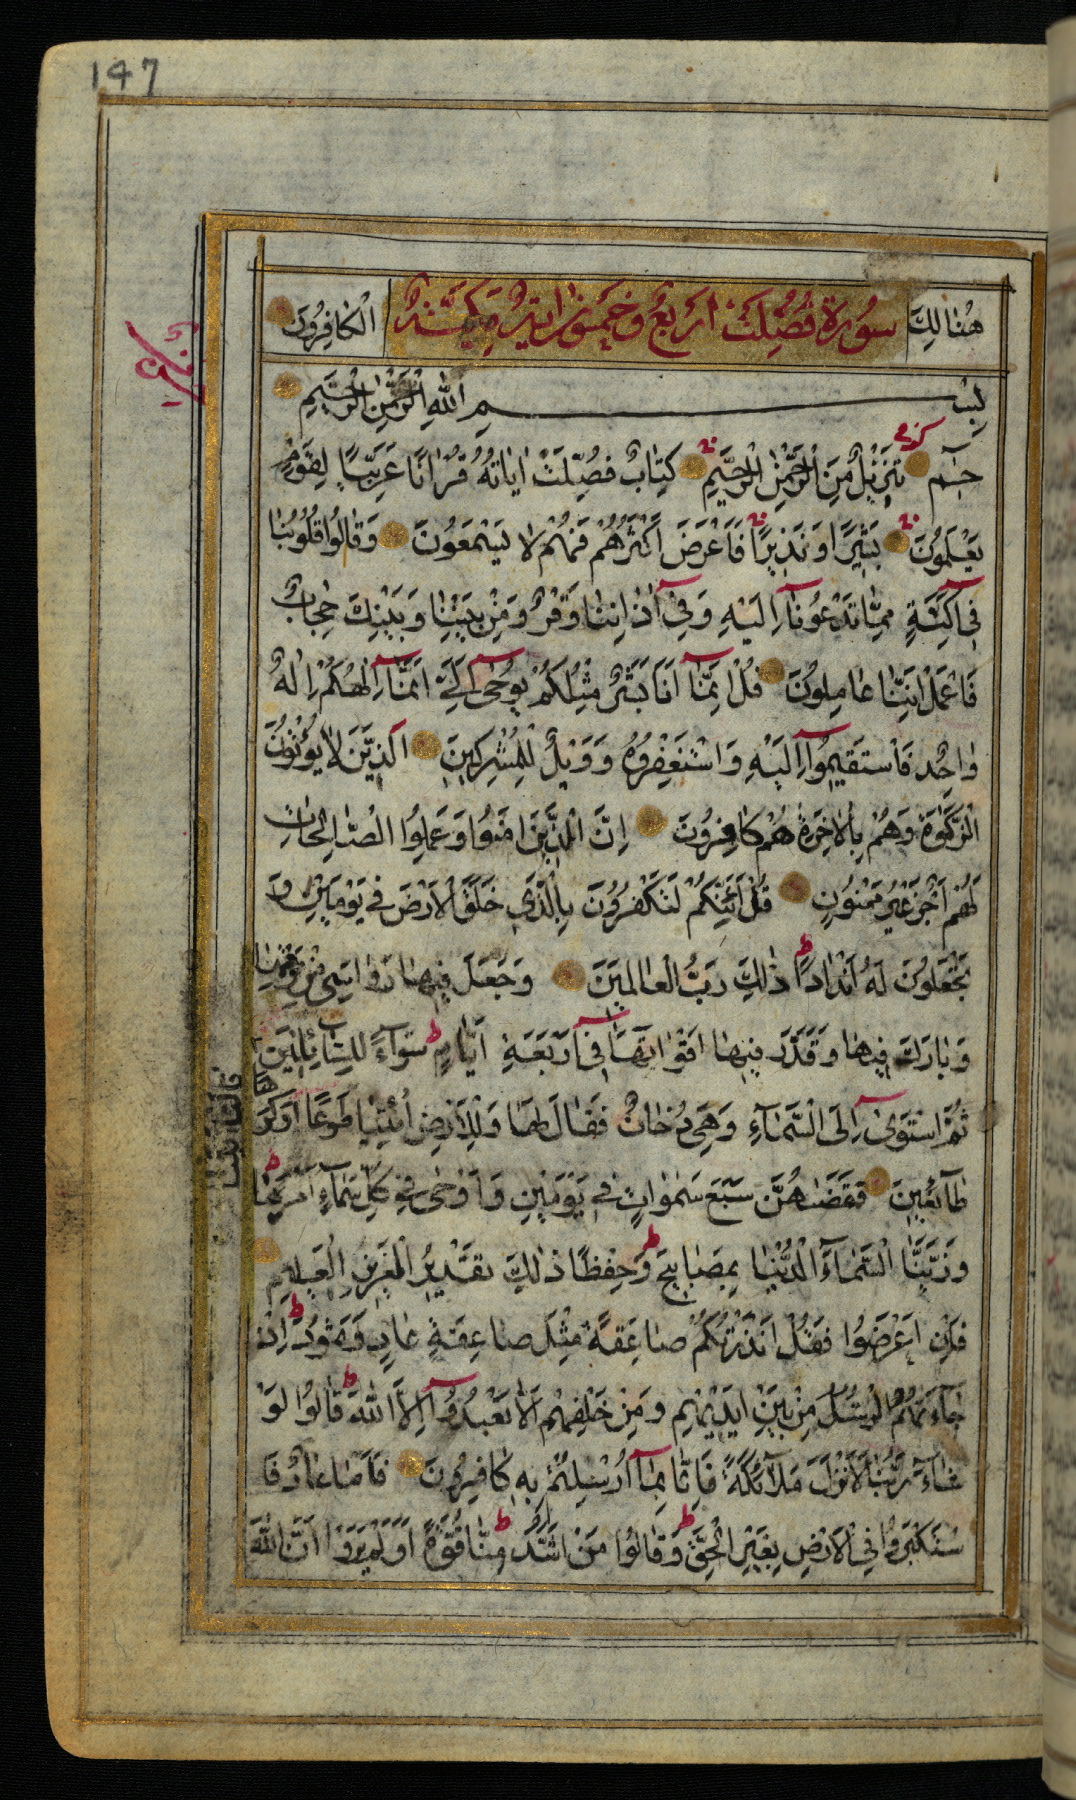 147
هُنٰالِكَ سُورَةُ فُصِّلَتْ اَرْبَعٌ وَخَمْسُونَ اٰيَةً مَكِّيَّةٌ الْكٰافِرُونَ
بِسْمِ اللّٰهِ الرَّحْمٰنِ الرَّحِيمِ
حٰمٓ تَنْزِيلٌ مِنَ الرَّحْمٰنِ الرَّحِيمِ كِتٰابٌ فُصِّلَتْ اٰيٰاتُهُ قُرْاٰنًا عَرَبِيًّا لِقَوْمٍ
يَعْلَمُونَ بَشِيرًا وَنَذِيرًا فَاَعْرَضَ اَكْثَرُهُمْ فَهُمْ لٰا يَسْمَعُونَ وَقٰالُوا قُلُوبُنٰا
فِي اَكِنَّةٍ مِمّٰا تَدْعُونٰا اِلَيْهِ وَفِي اٰذٰانِنٰا وَقْرٌ وَمِنْ بَيْنِنٰا وَبَيْنِكَ حِجٰابٌ
فَاعْمَلْ اِنَّنٰا عٰامِلُونَ قُلْ اِنَّمٰا اَنَا بَشَرٌ مِثْلُكُمْ يُوحٰى اِلَيَّ اَنَّمٰا اِلٰهُكُمْ اِلٰهٌ
وٰاحِدٌ فَاسْتَقِيمُوا اِلَيْهِ وَاسْتَغْفِرُوهُ وَوَيْلٌ لِلْمُشْرِكِينَ الَّذِينَ لٰا يُؤْتُونَ
الزَّكٰوةَ وَهُمْ بِالْاٰخِرَةِ هُمْ كٰافِرُونَ اِنَّ الَّذِينَ اٰمَنُوا وَعَمِلُوا الصّٰالِحٰاتِ
لَهُمْ اَجْرٌ غَيْرُ مَمْنُونٍ قُلْ اَئِنَّكُمْ لَتَكْفُرُونَ بِالَّذِي خَلَقَ الْاَرْضَ فِي يَوْمَيْنِ وَ
تَجْعَلُونَ لَهُ اَنْدٰادًا ذٰلِكَ رَبُّ الْعٰالَمِينَ وَجَعَلَ فِيهٰا رَوٰاسِيَ مِنْ فَوْقِهٰا
وَبٰارَكَ فِيهٰا وَقَدَّرَ فِيهٰا اَقْوٰاتَهٰا فِي اَرْبَعَةِ اَيّٰامٍ سَوٰاءً لِلسّٰائِلِينَ
ثُمَّ اسْتَوٰى اِلَى السَّمٰاءِ وَهِيَ دُخٰانٌ فَقٰالَ لَهٰا وَلِلْاَرْضِ ائْتِيٰا طَوْعًا اَوْ كَرْ
هًا قٰالَتٰا اَتَيْنٰا
طٰائِعِينَ فَقَضٰاهُنَّ سَبْعَ سَمٰوٰاتٍ فِي يَوْمَيْنِ وَاَوْحٰى فِي كُلِّ سَمٰاءٍ اَمْرَهٰا
وَزَيَّنَّا السَّمٰاءَ الدُّنْيٰا بِمَصٰابِيحَ وَحِفْظًا ذٰلِكَ تَقْدِيرُ الْعَزِيزِ الْعَلِيمِ
فَاِنْ اَعْرَضُوا فَقُلْ اَنْذَرْتُكُمْ صٰاعِقَةً مِثْلَ صٰاعِقَةِ عٰادٍ وَثَمُودَ اِذْ
جٰاءَتْهُمُ الرُّسُلُ مِنْ بَيْنِ اَيْدِيهِمْ وَمِنْ خَلْفِهِمْ اَلّٰا تَعْبُدُوا اِلَّا اللّٰهَ قٰالُوا لَوْ
شٰاءَ رَبُّنٰا لَاَنْزَلَ مَلٰائِكَةً فَاِنّٰا بِمٰا اُرْسِلْتُمْ بِهِ كٰافِرُونَ فَاَمّٰا عٰادٌ فَا
سْتَكْبَرُوا فِي الْاَرْضِ بِغَيْرِ الْحَقِّ وَقٰالُوا مَنْ اَشَدُّ مِنّٰا قُوَّةً اَوَلَمْ يَرَوْا اَنَّ اللّٰهَ